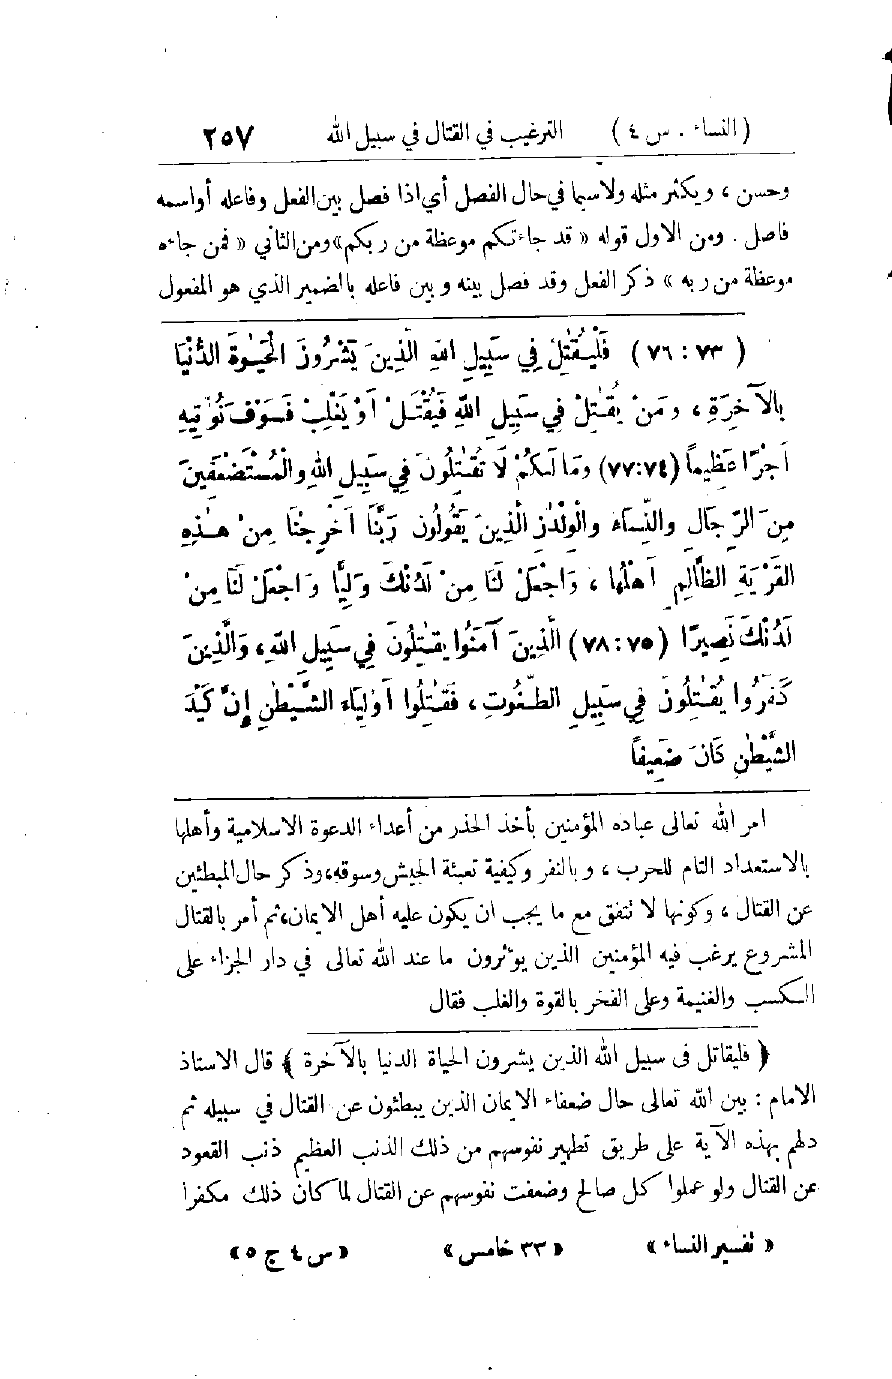 (النساء . س ٤) الترغيب في القتال في سبيل الله ٢٥٧
وحسن ، ويكثر مثله ولاسيما في حال الفصل أي اذا فصل بين الفعل وفاعله أو اسمه
فاصل . ومن الاول قوله « قد جاءتكم موعظة من ربكم» ومن الثاني « فمن جاءه
موعظة من ربه » ذكر الفعل وقد فصل بينه وبين فاعله بالضمير الذي هو المفعول
(٧٦:٧٣) فَلْيُقٰتِلْ فِي سَبِيلِ اللهِ الَّذِينَ يَشْرُونَ الْحَيٰوةَ الدُّنْيَا
بِالْآخِرَةِ ، وَمَنْ يُقٰتِلْ فِي سَبِيلِ اللهِ فَيُقْتَلْ أَوْ يَغْلِبْ فَسَوْفَ نُؤْتِيهِ
أَجْرًا عَظِيماً (٧٧:٧٤) وَمَا لَكُمْ لَا تُقٰتِلُونَ فِي سَبِيلِ اللهِ وَالْمُسْتَضْعَفِينَ
مِنَ الرِّجَالِ وَالنِّسَاءِ وَالْوِلْدٰنِ الَّذِينَ يَقُولُونَ رَبَّنَا أَخْرِجْنَا مِنْ هٰذِهِ
الْقَرْيَةِ الظَّالِمِ أَهْلُهَا ، وَاجْعَلْ لَنَا مِنْ لَدُنْكَ وَلِيًّا وَاجْعَلْ لَنَا مِنْ
لَدُنْكَ نَصِيرًا (٧٨:٧٥) الَّذِينَ آمَنُوا يُقٰتِلُونَ فِي سَبِيلِ اللهِ ، وَالَّذِينَ
كَفَرُوا يُقٰتِلُونَ فِي سَبِيلِ الطّٰغُوتِ ، فَقٰتِلُوا أَوْلِيَاءَ الشَّيْطٰنِ إِنَّ كَيْدَ
الشَّيْطٰنِ كَانَ ضَعِيفاً
امر الله تعالى عباده المؤمنين بأخذ الحذر من أعداء الدعوة الاسلامية وأهلها
بالاستعداد التام للحرب ، وبالنفر وكيفية تعبئة الجيش وسوقه، وذكر حال المبطئين
عن القتال ، وكونها لا تتفق مع ما يجب ان يكون عليه أهل الايمان، ثم أمر بالقتال
المشروع يرغب فيه المؤمنين الذين يؤثرون ما عند الله تعالى في دار الجزاء على
الكسب والغنيمة وعلى الفخر بالقوة والغلب فقال
﴿ فليقاتل فى سبيل الله الذين يشرون الحياة الدنيا بالآخرة ﴾ قال الاستاذ
الامام : بين الله تعالى حال ضعفاء الايمان الذين يبطئون عن القتال في سبيله ثم
دلهم بهذه الآية على طريق تطهير نفوسهم من ذلك الذنب العظيم ذنب القعود
عن القتال ولو عملوا كل صالح وضعفت نفوسهم عن القتال لما كان ذلك مكفرا
« تفسير النساء » « ٣٣ خامس » « س ٤ ج ٥ »